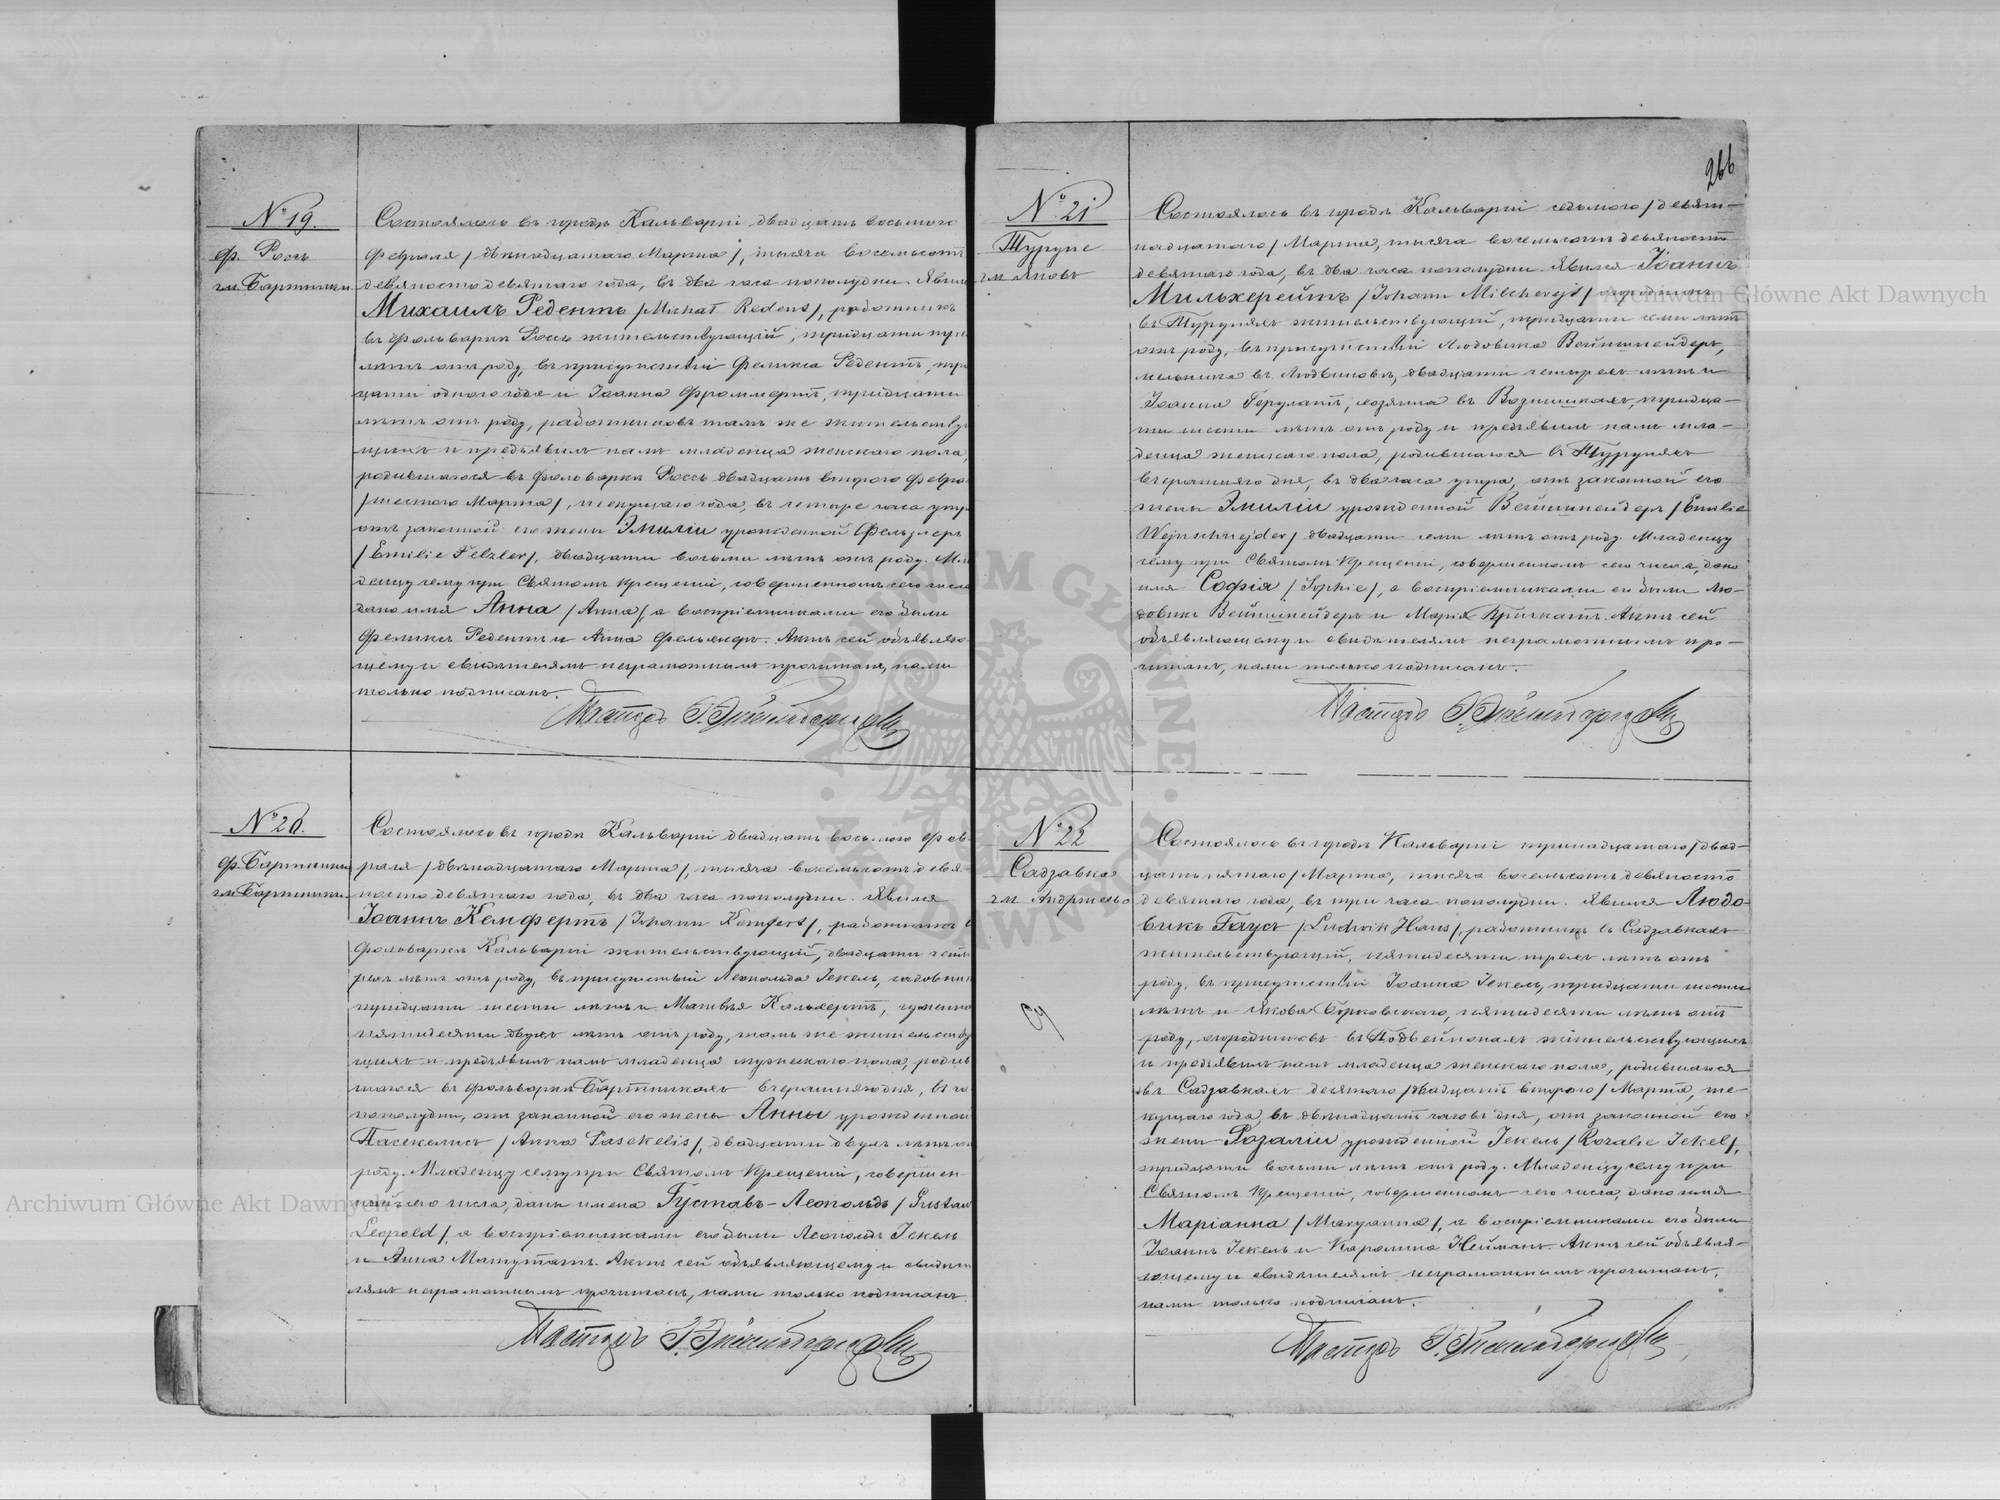 № 19.
ф. Россь
гм. Бартники
Состоялось въ городѣ Кальваріи двадцать восьмого
февраля /двѣнадцатаго Марта/, тысяча восемьсотъ
девяносто девятаго года, въ два часа пополудни. Явился
Михаилъ Редентъ /Michał Redent/, работникъ
въ фольваркѣ Россь жительствующій, тридцати трехъ
лѣтъ отъ роду, въ присутствіи Феликса Редентъ, трид
цати одного года и Іоанна Фроммертъ, тридцати
лѣтъ отъ роду, работниковъ тамъ же жительству
щихъ и предъявилъ намъ младенца женскаго пола,
родившагося въ фольваркѣ Россь двадцать второго февра
/шестого Марта/, текущаго года, въ четыре часа утр
отъ законной его жены Эмиліи урожденной Фельцлеръ
/Emilie Felzler/, двадцати восьми лѣтъ отъ роду. Мла
денцу сему при Святомъ Крещеніи, совершенномъ сего числа
дано имя Анна /Anna/, а воспріемниками его были
Феликсъ Редентъ и Анна . Актъ сей объявляю
щему и свидѣтелямъ неграмотнымъ прочитанъ, нами
только подписанъ.
Пасторъ
№ 20.
ф. Бартники
гм. Бартники
Состоялось въ городѣ Кальваріи двадцать восьмого фев
раля /двѣнадцатаго Марта/, тысяча восемьсотъ девя
носто девятаго года, въ два часа пополудни. Явился
Іоаннъ Кемфертъ /Johann Kemfert/, работникъ въ
фольваркѣ Кальваріи жительствующій, двадцати четы
рехъ лѣтъ отъ роду, въ присутствіи Леопольда Іекель, садовник
тридцати шести лѣтъ и Матвѣя,
пятидесяти двухъ лѣтъ отъ роду, тамъ же жительству
щихъ и предъявилъ намъ младенца мужескаго пола, родив
шагося въ фольваркѣ Бартникахъ вчерашняго дня, въ
пополудни, отъ законной его жены Анны урожденной
Пасекелисъ /Anna Pasekelis/, двадцати двухъ лѣтъ от
роду. Младенцу сему при Святомъ Крещеніи, совершен
номъ сего числа, даны имена Густавъ-Леопольдъ /Gustaw
Leopold/, а воспріемниками его были Леопольдъ Іекель
и Анна Матутатъ. Актъ сей объявляющему и свидѣте
лямъ неграмотнымъ прочитанъ, нами только подписанъ.
Пасторъ
266
№ 21
Турупе
гм. Яновъ
Состоялось въ городѣ Кальваріи седьмого /девят-
надцатаго/ Марта, тысяча восемьсотъ девяносто
девятаго года, въ два часа пополудни. Явился Іоаннъ
Мильхерейтъ /Johann Milcherejt/
въ Турупяхъ жительствующій, тридцати семи лѣтъ
отъ роду, въ присутствіи Людовика Вейншнейдеръ,
мельника въ Людвиновѣ, двадцати четырехъ лѣтъ и
Іоанна Герулатъ, хозяина въ, тридца-
ти шести лѣтъ отъ роду и предъявилъ намъ мла-
денца женскаго пола, родившагося въ Турупяхъ
вчерашняго дня, въ два часа утра, отъ законной его
жены Эмиліи урожденной Вейншнейдеръ /Emilie
Wejnschnejder/ двадцати семи лѣтъ отъ роду. Младенцу
сему при Святомъ Крещеніи, совершенномъ сего числа, дано
имя Софія /Sophie/, а воспріемниками его были Лю-
довикъ Вейншнейдеръ и Марія. Актъ сей
объявляющему и свидѣтелямъ неграмотнымъ про-
читанъ, нами только подписанъ.
Пасторъ
№ 22
Садзавка
гм. Андржеево
Состоялось въ городѣ Кальваріи тринадцатаго /двад-
цать пятаго/ Марта, тысяча восемьсотъ девяносто
девятаго года, въ три часа пополудни. Явился Людо-
викъ Гаусъ /Ludwik Haus/, работникъ въ Садзавкахъ
жительствующій, пятидесяти трехъ лѣтъ отъ
роду, въ присутствіи Іоанна Іекель, тридцати шести
лѣтъ и Якова Борковскаго, пятидесяти лѣтъ отъ
роду, огородниковъ въ жительствующихъ
и предъявилъ намъ младенца женскаго пола, родившагося
въ Садзавкахъ десятаго /двадцать второго/ Марта, те-
кущаго года, въ двѣнадцать часовъ дня, отъ законной его
жены Розаліи урожденной Іекель /Rozalie Jekel/,
тридцати восьми лѣтъ отъ роду. Младенцу сему при
Святомъ Крещеніи, совершенномъ сего числа, дано имя
Маріанна /Maryanna/, а воспріемниками его были
Іоаннъ Іекель и Каролина Нейманъ. Актъ сей объявля-
ющему и свидѣтелямъ неграмотнымъ прочитанъ,
нами только подписанъ.
Пасторъ
Archiwum Główne Akt Dawnych
Archiwum Główne Akt Dawnych